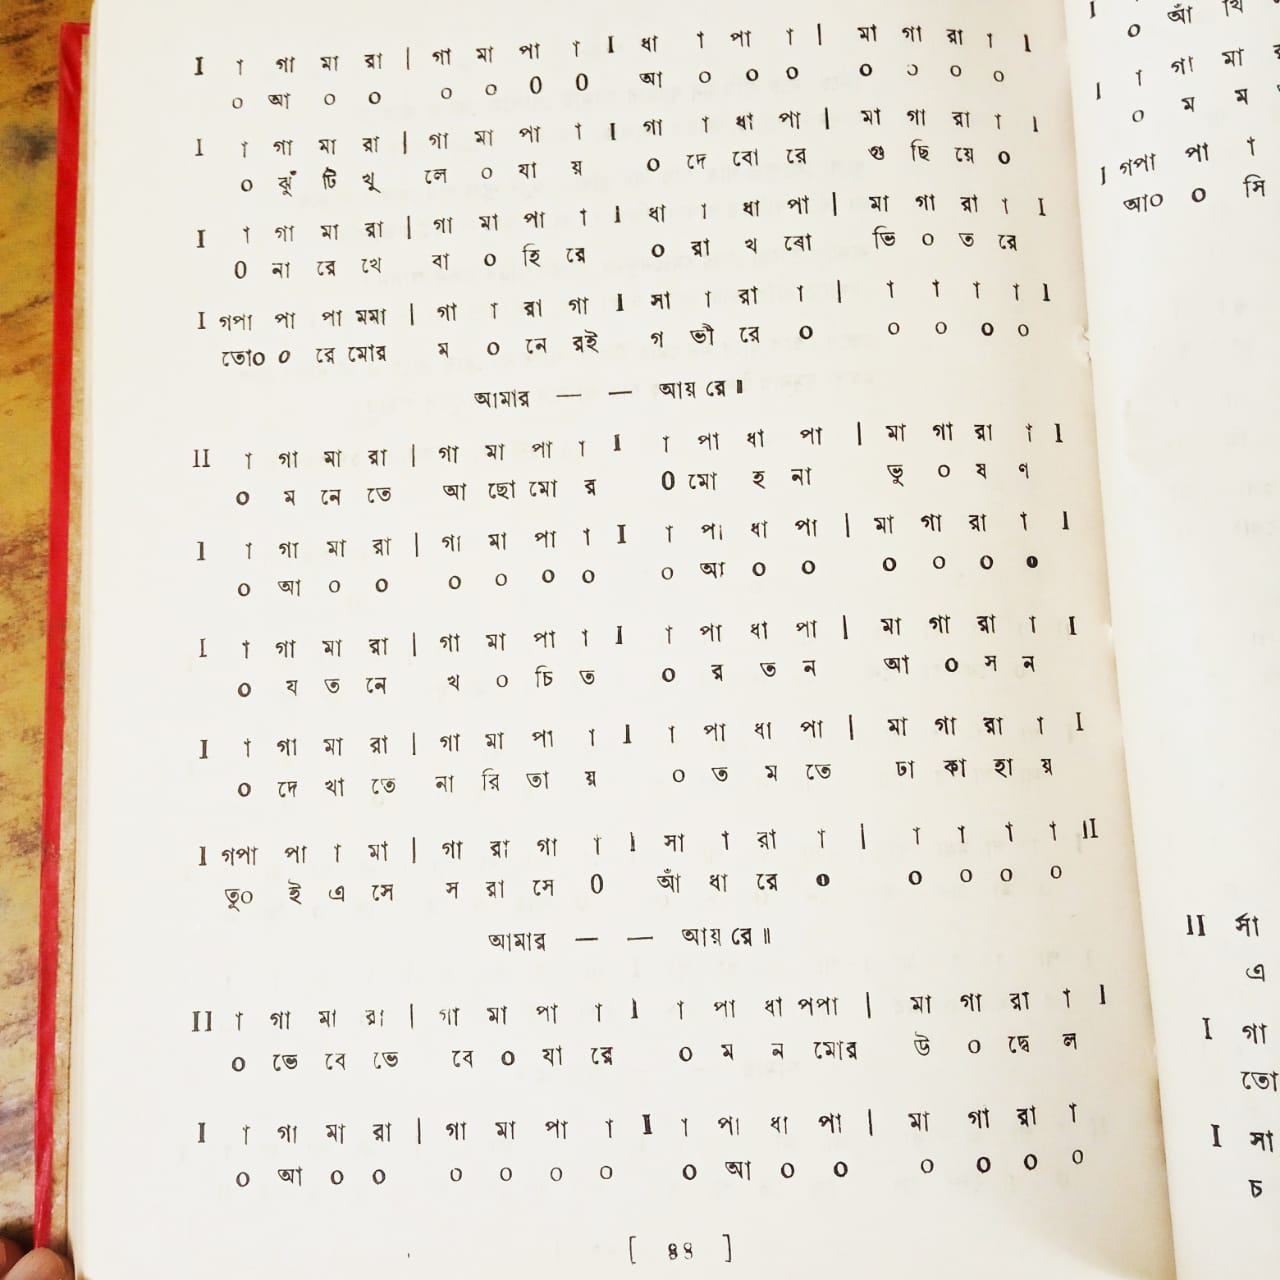 I † গা মা রা | গা মা পা † I ধা † পা † | মা গা রা † I
০ আ ০ ০ ০ ০ ০ ০ আ ০ ০ ০ ০ ০ ০ ০
I † গা মা রা | গা মা পা † I গা † ধা পা | মা গা রা † I
০ ঝুঁ টি খু লে ০ যা য় ০ দে বো রে গু ছি য়ে ০
I † গা মা রা | গা মা পা † I ধা † ধা পা | মা গা রা † I
০ না রে থে বা ০ হি রে ০ রা খ বো ভি ০ ত রে
I গপা পা পা মমা | গা † রা গা I সা † রা † | † † † † I
তো০ ০ রে মোর ম ০ নে রই গ ভী রে ০ ০ ০ ০ ০
আমার — — আয় রে ॥
II † গা মা রা | গা মা পা † I † পা ধা পা | মা গা রা † I
০ ম নে তে আ ছো মো র ০ মো হ না ভূ ০ ষ ণ
I † গা মা রা | গা মা পা † I † পা ধা পা | মা গা রা † I
০ আ ০ ০ ০ ০ ০ ০ ০ আ ০ ০ ০ ০ ০ ০
I † গা মা রা | গা মা পা † I † পা ধা পা | মা গা রা † I
০ য ত নে খ ০ চি ত ০ র ত ন আ ০ স ন
I † গা মা রা | গা মা পা † I † পা ধা পা | মা গা রা † I
০ দে খা তে না রি তা য় ০ ত ম তে ঢা কা হা য়
I গপা পা † মা | গা রা গা † I সা † রা † | † † † † II
তু০ ই এ সে স রা সে ০ আঁ ধা রে ০ ০ ০ ০ ০
আমার — — আয় রে ॥
II † গা মা রা | গা মা পা † I † পা ধা পপা | মা গা রা † I
০ ভে বে ভে বে ০ যা রে ০ ম ন মোর উ ০ দ্বে ল
I † গা মা রা | গা মা পা † I † পা ধা পা | মা গা রা †
০ আ ০ ০ ০ ০ ০ ০ ০ আ ০ ০ ০ ০ ০ ০
[ ৪৪ ]
I
০ আঁ থি
I † গা মা
০ ম ম
I গপা পা †
আ০ ০ সি
II র্সা
এ
I গা
তো
I সা
চ